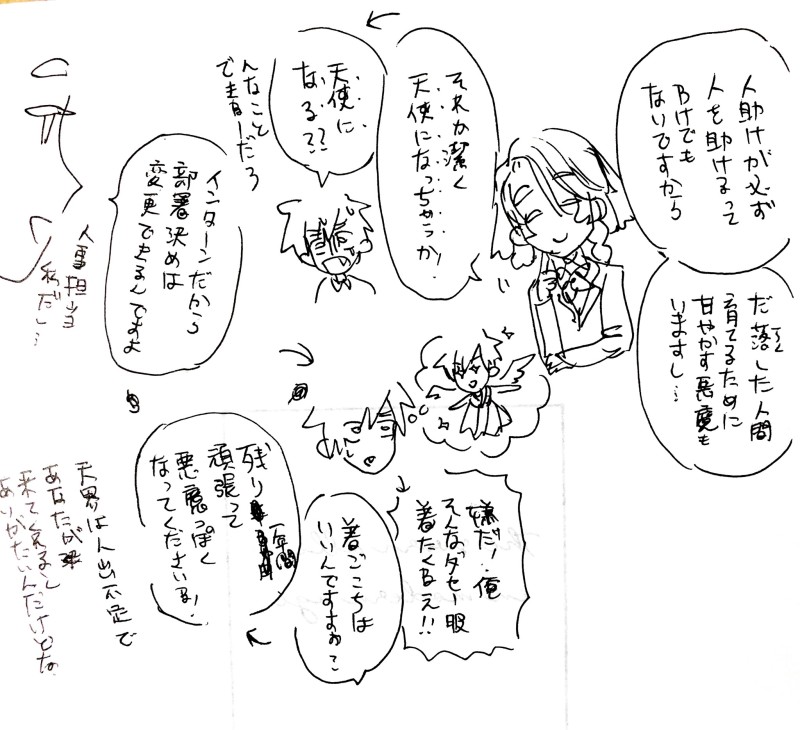 人助けが必ず
人を助けるって
わけでも
ないですから
だ落した人間
育てるために
甘やかす悪魔も
いますし…
それか潔く
天使になっちゃうか!
天使に
なる??
んなこと
できねーだろ
インターンだから
部署決めは
変更できるんですよ
人事担当
私だし…
嫌だ!俺
そんなダセー服
着たくねえ!!
着ごこちは
いいんですすわ?
残り一年間
頑張って
悪魔っぽく
なってくださいね!
天界は人出不足で
あなたが
来てくれると
ありがたいんだけどな